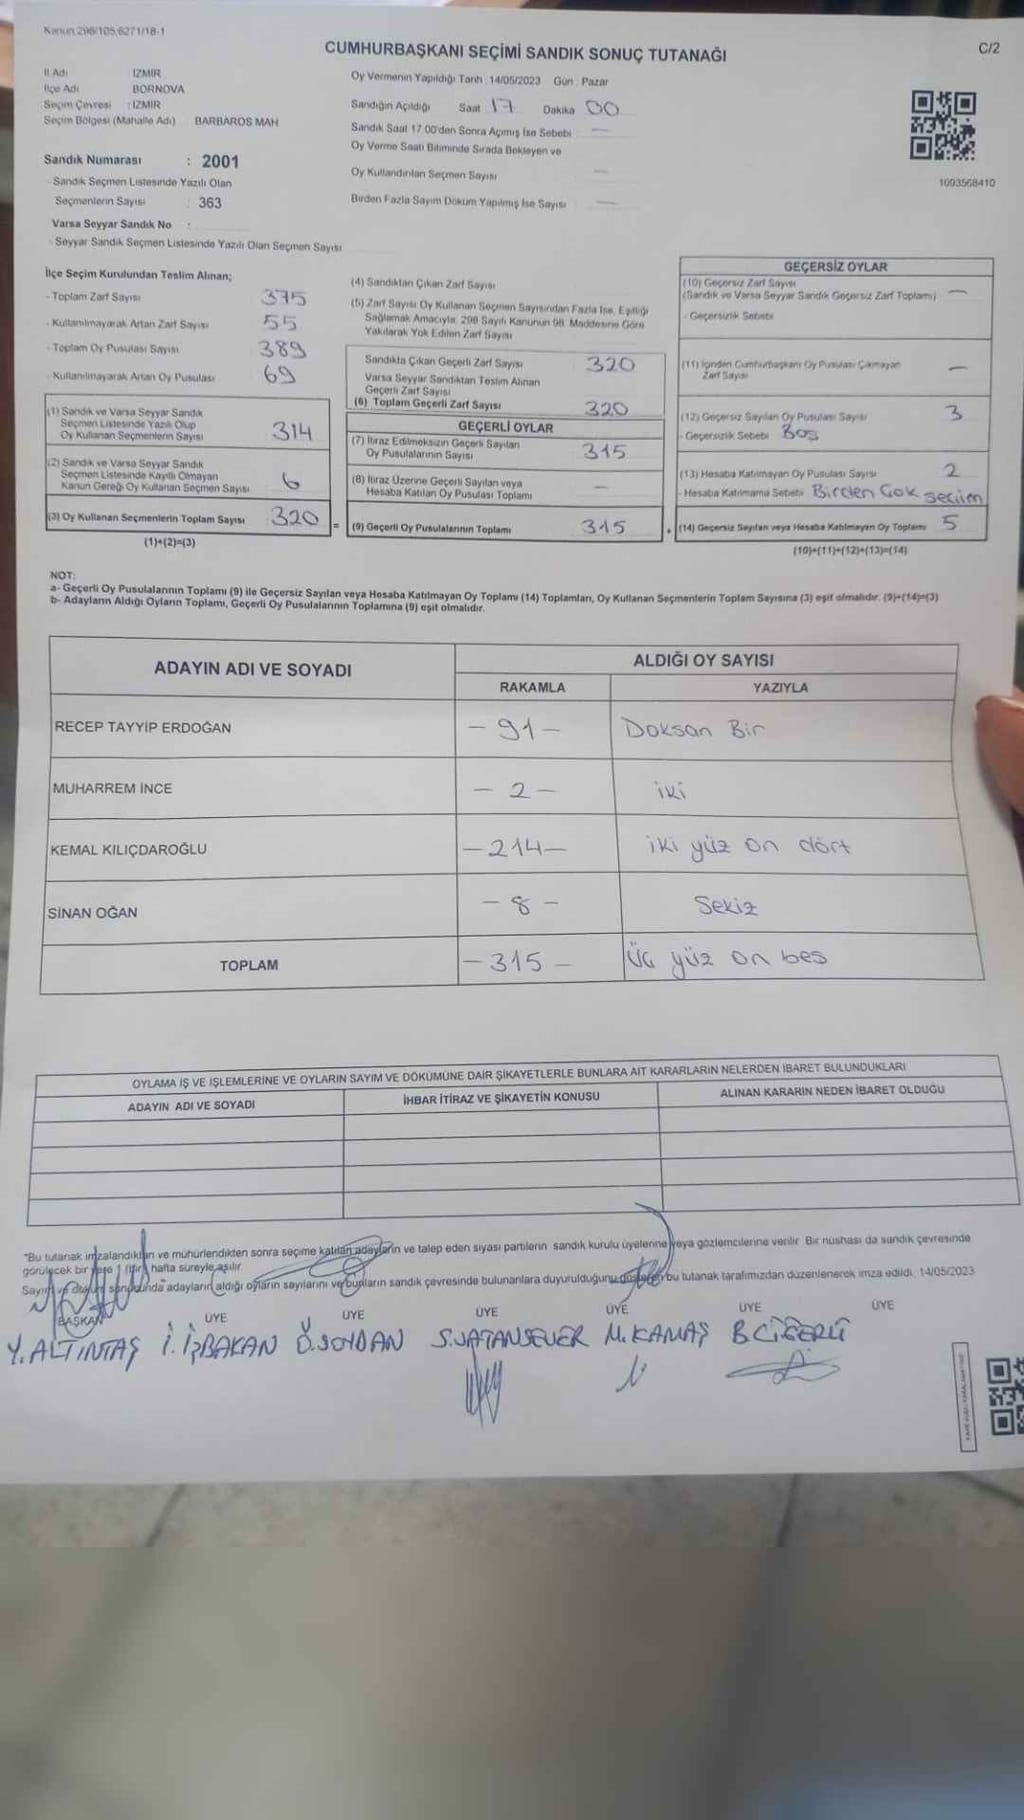 Kanun 298/105,6271/18-1
CUMHURBAŞKANI SEÇİMİ SANDIK SONUÇ TUTANAĞI
C/2
İl Adı İZMİR
İlçe Adı BORNOVA
Seçim Çevresi : İZMİR
Seçim Bölgesi (Mahalle Adı) BARBAROS MAH
Sandık Numarası : 2001
- Sandık Seçmen Listesinde Yazılı Olan
Seçmenlerin Sayısı : 363
Varsa Seyyar Sandık No :
- Seyyar Sandık Seçmen Listesinde Yazılı Olan Seçmen Sayısı
Oy Vermenin Yapıldığı Tarih : 14/05/2023 Gün : Pazar
Sandığın Açıldığı Saat 17 Dakika 00
Sandık Saat 17.00'den Sonra Açımış İse Sebebi —
Oy Verme Saati Bitiminde Sırada Bekleyen ve
Oy Kullandırılan Seçmen Sayısı —
Birden Fazla Sayım Döküm Yapılmış İse Sayısı —
1003568410
İlçe Seçim Kurulundan Teslim Alınan;
- Toplam Zarf Sayısı 375
- Kullanılmayarak Artan Zarf Sayısı 55
- Toplam Oy Pusulası Sayısı 389
- Kullanılmayarak Artan Oy Pusulası 69
(1) Sandık ve Varsa Seyyar Sandık
Seçmen Listesinde Yazılı Olup
Oy Kullanan Seçmenlerin Sayısı 314
(2) Sandık ve Varsa Seyyar Sandık
Seçmen Listesinde Kayıtlı Olmayan
Kanun Gereği Oy Kullanan Seçmen Sayısı 6
(3) Oy Kullanan Seçmenlerin Toplam Sayısı 320 =
(1)+(2)=(3)
(4) Sandıktan Çıkan Zarf Sayısı
(5) Zarf Sayısı Oy Kullanan Seçmen Sayısından Fazla İse, Eşitliği
Sağlamak Amacıyla; 298 Sayılı Kanunun 98. Maddesine Göre
Yakılarak Yok Edilen Zarf Sayısı
Sandıkta Çıkan Geçerli Zarf Sayısı 320
Varsa Seyyar Sandıktan Teslim Alınan
Geçerli Zarf Sayısı
(6) Toplam Geçerli Zarf Sayısı 320
GEÇERLİ OYLAR
(7) İtiraz Edilmeksizin Geçerli Sayılan
Oy Pusulalarının Sayısı 315
(8) İtiraz Üzerine Geçerli Sayılan veya
Hesaba Katılan Oy Pusulası Toplamı —
(9) Geçerli Oy Pusulalarının Toplamı 315 +
GEÇERSİZ OYLAR
(10) Geçersiz Zarf Sayısı
(Sandık ve Varsa Seyyar Sandık Geçersiz Zarf Toplamı) —
- Geçersizlik Sebebi
(11) İçinden Cumhurbaşkanı Oy Pusulası Çıkmayan
Zarf Sayısı —
(12) Geçersiz Sayılan Oy Pusulası Sayısı 3
- Geçersizlik Sebebi Boş
(13) Hesaba Katılmayan Oy Pusulası Sayısı 2
- Hesaba Katılmama Sebebi Birden Çok seçim
(14) Geçersiz Sayılan veya Hesaba Katılmayan Oy Toplamı 5
(10)+(11)+(12)+(13)=(14)
NOT:
a- Geçerli Oy Pusulalarının Toplamı (9) ile Geçersiz Sayılan veya Hesaba Katılmayan Oy Toplamı (14) Toplamları, Oy Kullanan Seçmenlerin Toplam Sayısına (3) eşit olmalıdır. (9)+(14)=(3)
b- Adayların Aldığı Oyların Toplamı, Geçerli Oy Pusulalarının Toplamına (9) eşit olmalıdır.
ADAYIN ADI VE SOYADI ALDIĞI OY SAYISI
RAKAMLA YAZIYLA
RECEP TAYYİP ERDOĞAN - 91 - Doksan Bir
MUHARREM İNCE - 2 - iki
KEMAL KILIÇDAROĞLU - 214 - iki yüz on dört
SİNAN OĞAN - 8 - Sekiz
TOPLAM - 315 - Üç yüz on beş
OYLAMA İŞ VE İŞLEMLERİNE VE OYLARIN SAYIM VE DÖKÜMÜNE DAİR ŞİKAYETLERLE BUNLARA AİT KARARLARIN NELERDEN İBARET BULUNDUKLARI
ADAYIN ADI VE SOYADI İHBAR İTİRAZ VE ŞİKAYETİN KONUSU ALINAN KARARIN NEDEN İBARET OLDUĞU
*Bu tutanak imzalandıktan ve mühürlendikten sonra seçime katılan adayların ve talep eden siyasi partilerin sandık kurulu üyelerine veya gözlemcilerine verilir. Bir nüshası da sandık çevresinde
görülecek bir yere 1 (bir) hafta süreyle asılır.
Sayım ve döküm sonucunda adayların aldığı oyların sayılarını ve bunların sandık çevresinde bulunanlara duyurulduğunu gösteren bu tutanak tarafımızdan düzenlenerek imza edildi. 14/05/2023
BAŞKAN ÜYE ÜYE ÜYE ÜYE ÜYE ÜYE
Y. ALTINTAŞ İ. İŞBAKAN Ö.SOYDAN S.VATANSEVER M.KAMAŞ B.CİĞERLİ